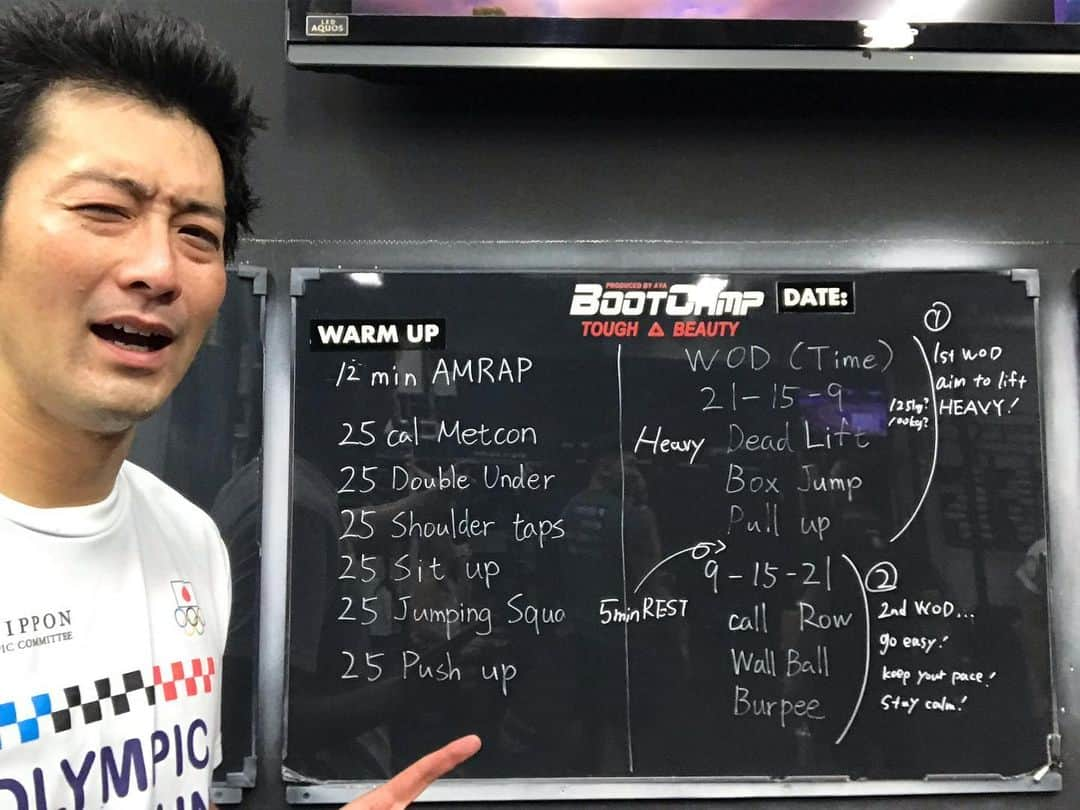 LED
AQUOS
PRODUCED BY AYA
BOOTCAMP
TOUGH BEAUTY
DATE:
WARM UP
12 min AMRAP
25 cal Metcon
25 Double Under
25 Shoulder taps
25 Sit up
25 Jumping Squa
25 Push up
WOD (Time)
21-15-9
Heavy Dead Lift
Box Jump
Pull up
125kg?
100kg?
1
1st WOD
aim to lift
HEAVY!
5min REST
9-15-21
call Row
Wall Ball
Burpee
2
2nd WOD...
go easy!
keep your pace!
stay calm!
IPPON
IC COMMITTEE
OLYMPIC